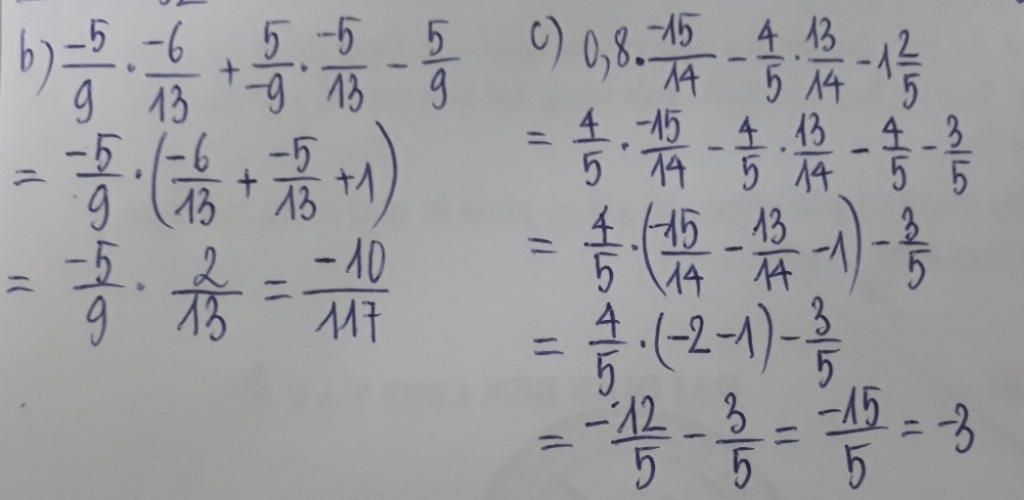 b) -5/9 . -6/13 + 5/-9 . -5/13 - 5/9
= -5/9 . (-6/13 + -5/13 + 1)
= -5/9 . 2/13 = -10/117
c) 0,8 . -15/14 - 4/5 . 13/14 - 1 2/5
= 4/5 . -15/14 - 4/5 . 13/14 - 4/5 - 3/5
= 4/5 . (-15/14 - 13/14 - 1) - 3/5
= 4/5 . (-2 - 1) - 3/5
= -12/5 - 3/5 = -15/5 = -3